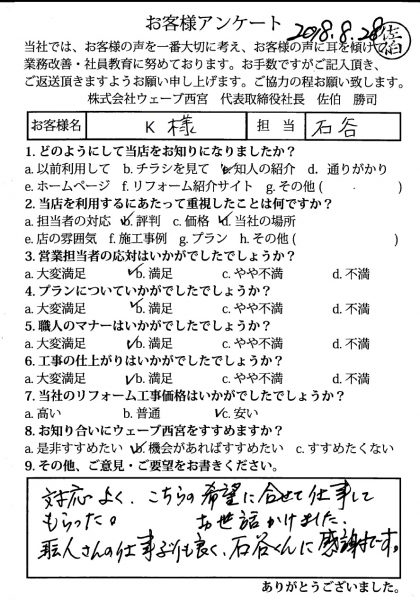 お客様アンケート 2018.8.28 佐伯
当社では、お客様の声を一番大切に考え、お客様の声に耳を傾けて
業務改善・社員教育に努めております。お手数ですがご記入頂き、
ご返送頂きますようお願い申し上げます。ご協力の程お願い致します。
株式会社ウェーブ西宮 代表取締役社長 佐伯 勝司
お客様名 K 様 担当 石谷
1. どのようにして当店をお知りになりましたか?
a. 以前利用して b. チラシを見て c. 知人の紹介 d. 通りがかり
e. ホームページ f. リフォーム紹介サイト g. その他 ( )
2. 当店を利用するにあたって重視したことは何ですか?
a. 担当者の対応 b. 評判 c. 価格 d. 当社の場所
e. 店の雰囲気 f. 施工事例 g. プラン h. その他 ( )
3. 営業担当者の応対はいかがでしたでしょうか?
a. 大変満足 b. 満足 c. やや不満 d. 不満
4. プランについていかがでしたでしょうか?
a. 大変満足 b. 満足 c. やや不満 d. 不満
5. 職人のマナーはいかがでしたでしょうか?
a. 大変満足 b. 満足 c. やや不満 d. 不満
6. 工事の仕上がりはいかがでしたでしょうか?
a. 大変満足 b. 満足 c. やや不満 d. 不満
7. 当社のリフォーム工事価格はいかがでしたでしょうか?
a. 高い b. 普通 c. 安い
8. お知り合いにウェーブ西宮をすすめますか?
a. 是非すすめたい b. 機会があればすすめたい c. すすめたくない
9. その他、ご意見・ご要望をお書きください。
対応よく、こちらの希望に合せて仕事して
もらった。 お世話かけました、
職人さんの仕事も良く、石谷くんに感謝です。
ありがとうございました。